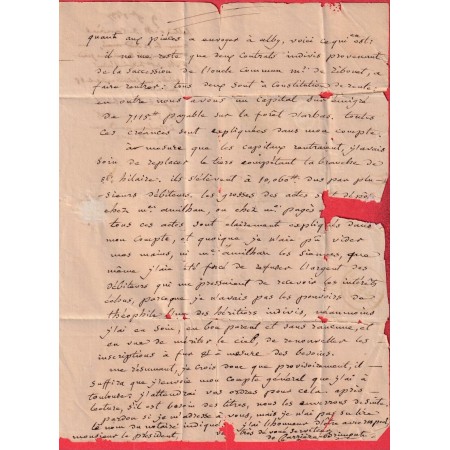 quant aux pièces a envoyer à alby, voici ce qui est:
il ne me reste que deux contrats indivis provenant
de la succession de l'oncle commun mr. de Ribouet, a
faire rentrer: tous deux sont a constitution de rente
en outre nous avons un capital sur émigré
de 7115# payable sur la forêt d'arbas, toutes
ces créances sont expliquées dans mon compte.
à mesure que les capitaux rentraient, j'avais
soin de replacer le tiers compétant la branche de
st. hilaire. ils s'élèvent à 10,060# dus par plu-
sieurs débiteurs. les grosses des actes sont
chez mr. amilhau, ou chez mr. pagès
tous ces actes sont clairement expliqués dans
mon compte, et quoique je n'aie pu vider
mes mains, ni mr. amilhau les siennes, que
même j'ai été forcé de refuser l'argent des
débiteurs qui me pressaient de recevoir les intérêts
échus, parceque je n'avais pas les pouvoirs de
théophile l'un des héritiers indivis, néanmoins
j'ai eu soin, en bon parent et sans rancune, et
en vue de mériter le ciel, de renouveller les
inscriptions à fur et à mesure des besoins.
me résumant, je crois donc que provisoirement, il
suffira que j'envoie mon compte général que j'ai à
toulouse; j'attendrai vos ordres pour cela. après
lecture, s'il est besoin des titres, nous les enverrons de suite.
pardon si je m'adresse à vous, mais je n'ai pas su lire
le nom du notaire indiqué. j'ai l'honneur d'être avec respect
monsieur le président, votre très dévoué serviteur
de Carrière